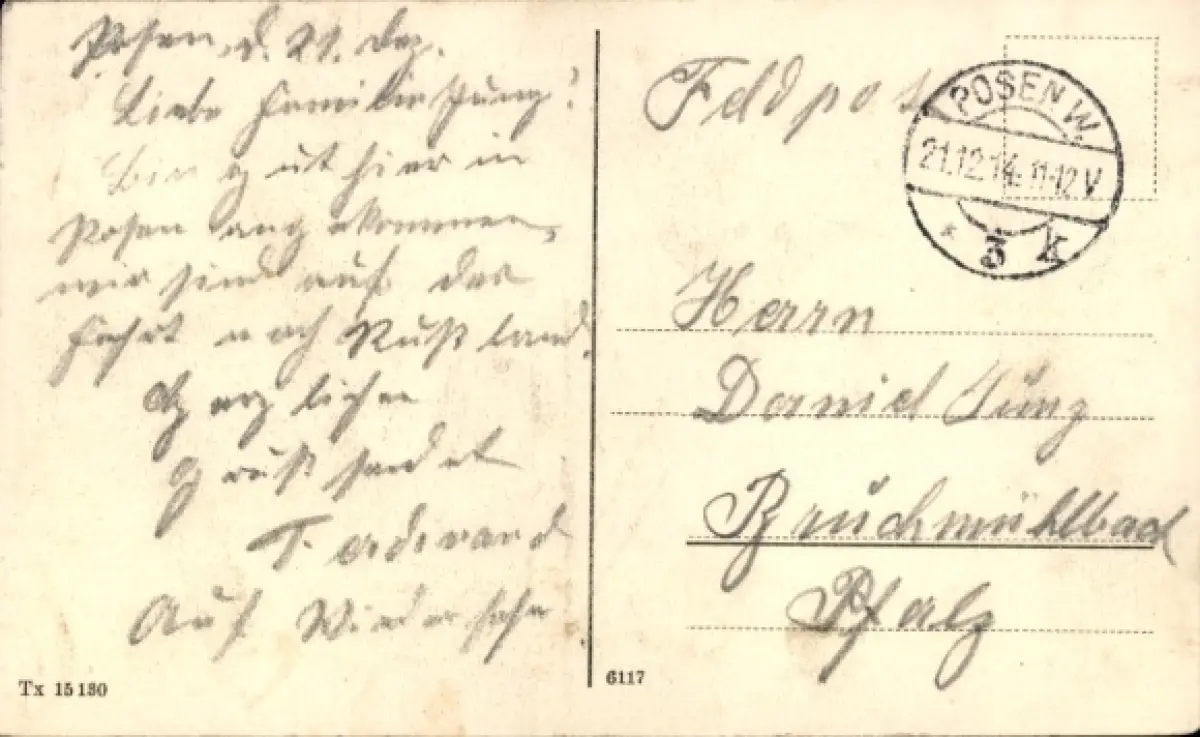 Posen, d. 21. Dez.
Liebe Familie Jung!
Bin gut hier in
Posen angekommen,
wir sind auf der
Fahrt nach Rußland.
Herzlichen
Gruß sendet
Ferdinand
Auf Wiedersehn
Tx 15180
Feldpost
POSEN W.
21.12.14. 11-12 V
* 3 k
Herrn
Daniel Jung
Bruchmühlbach
Pfalz
6117